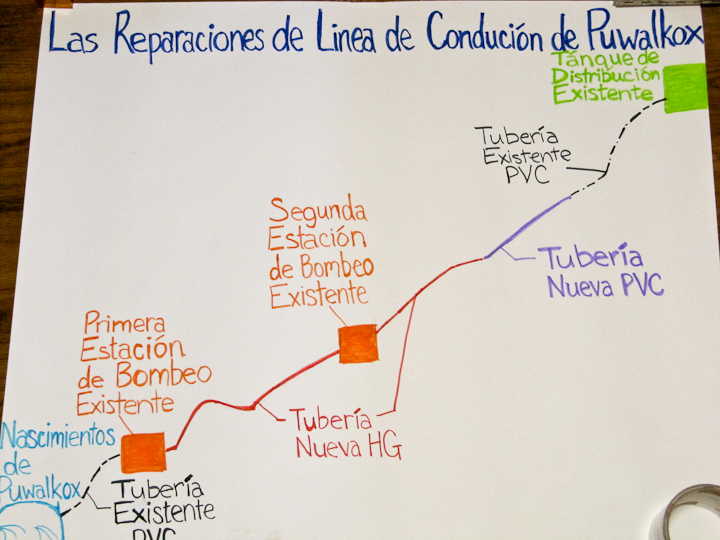 Las Reparaciones de Linea de Condución de Puwalkox
Tánque de
Distribución
Existente
Tubería
Existente
PVC
Segunda
Estación
de Bombeo
Existente
Tubería
Nueva PVC
Primera
Estación
de Bombeo
Existente
Tubería
Nueva HG
Nascimientos
de
Puwalkox
Tubería
Existente
PVC